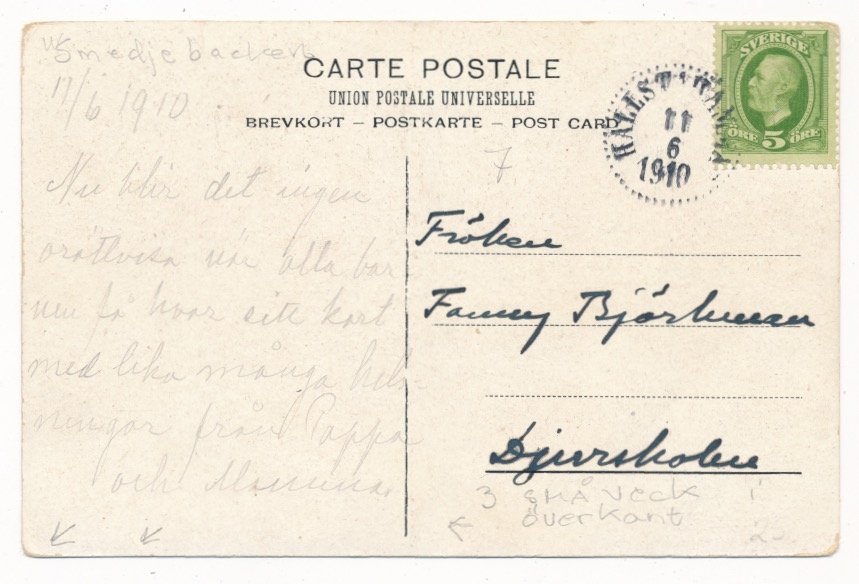 Smedjebacken
CARTE POSTALE
UNION POSTALE UNIVERSELLE
BREVKORT – POSTKARTE – POST CARD
11/6 1910
SVERIGE
ÖRE 5 ÖRE
11
6
1910
7
Nu blir det ingen
orättvisa när alla bar
nen få hvar sitt kort
med lika många hels-
ningar från Pappa
och Mamma
Fröken
Fanny Björkman
Djursholm
3 SMÅ VECK i
överkant
2-